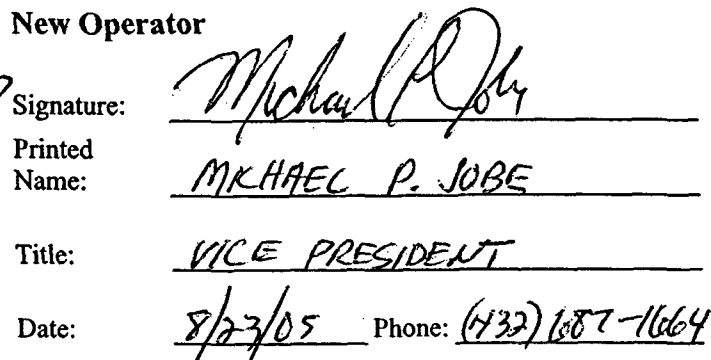 New Operator
Signature: Michael P. Jobe
Printed
Name: MICHAEL P. JOBE
Title: VICE PRESIDENT
Date: 8/23/05 Phone: (432) 687-1664